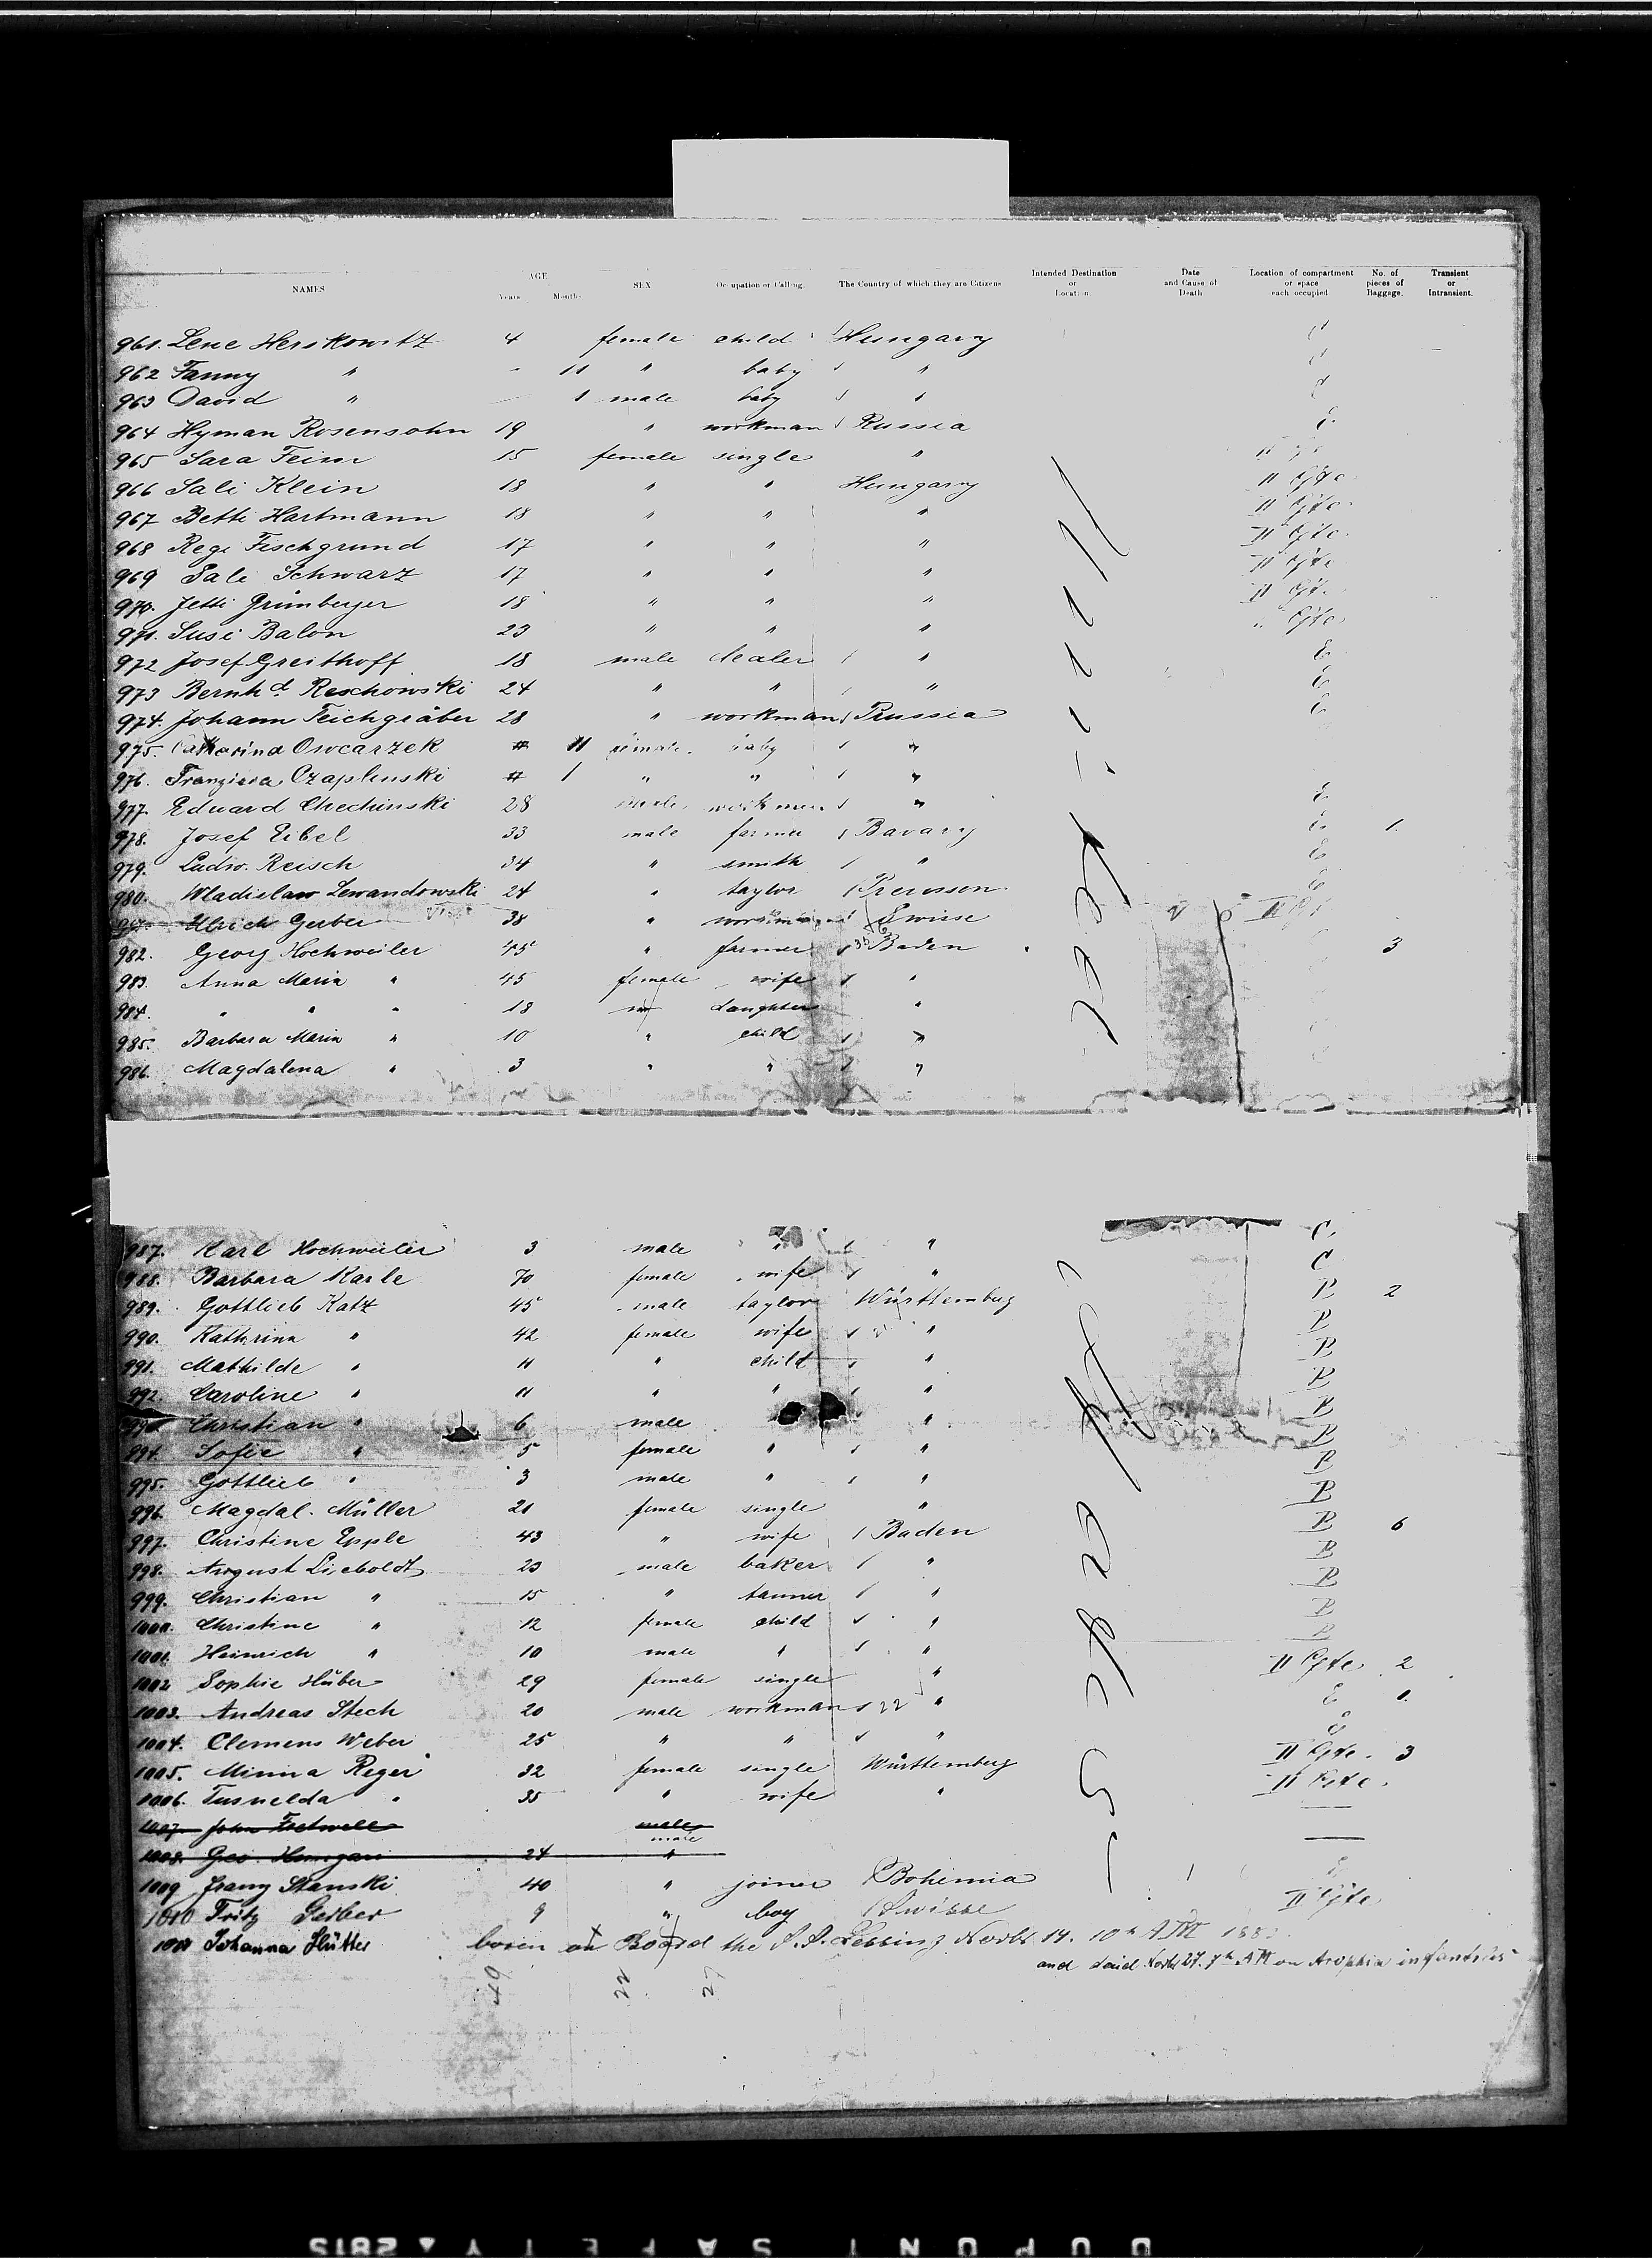 NAMES AGE Years Months SEX Occupation or Calling. The Country of which they are Citizens Intended Destination or Location Date and Cause of Death Location of compartment or space each occupied No. of pieces of Baggage. Transient or Intransient.
961. Lene Herskowitz 4 female child Hungary
962 Fanny " - 11 " baby "
963 David " - 1 male baby "
964 Hyman Rosensohn 19 " workman Russia E.
965 Sara Feim 15 female single "
966 Sali Klein 18 " " Hungary II Cjte
967 Betti Hartmann 18 " " " II Cjte.
968 Regi Fischgrund 17 " " " II Cjte.
969 Sali Schwarz 17 " " " II Cjte
970. Jetti Grünberger 18 " " " II Cjt.
971. Susi Balon 23 " " " Cjte
972 Josef Greithoff 18 male dealer " E
973 Bernhd. Reschowski 24 " " " E
974. Johann Teichgräber 28 " workman Prussia E
975. Catharina Owcarzek 11 female baby "
976. Franzisca Czaplinski 1 " " "
977. Eduard Chechinski 28 male workman " E
978. Josef Eibel 33 male farmer Bavary E 1.
979. Ludw. Reisch 34 " smith " E
980. Wladislaw Lewandowski 24 " taylor Preussen E
Ulrich Gerber 38 " Swisse II
982. Georg Hochweiler 45 " farmer Baden 3
983. Anna Maria " 45 female wife "
984. " " " 18 daughter "
985. Barbara Maria " 10 " child "
986. Magdalena " 3 " " "
987. Karl Hochweiler 3 male " " C.
988. Barbara Karle 70 female wife " C
989. Gottlieb Katz 45 male taylor Württemberg B 2
990. Kathrina " 42 female wife " B
991. Mathilde " 11 " child " B
992. Caroline " 11 " " " B
993. Christian " 6 male " B
994. Sofie " 5 female " " B
995. Gottlieb " 3 male " " B
996. Magdal. Müller 21 female single " B
997. Christine Epple 43 " wife Baden B 6
998. August Lieboldt 23 male baker " B
999. Christian " 15 " tanner " B
1000. Christine " 12 female child " B
1001. Heinrich " 10 male " " B
1002 Sophie Huber 29 female single " II Cjte 2
1003. Andreas Stech 20 male workman 22 " E 1.
1004. Clemens Weber 25 " " " E
1005. Minna Reger 32 female single Württemberg II Cjte. 3
1006. Tusnelda " 35 " wife " II Cjte.
1007. John male —
male
1008. Geo. 24 " —
1009 Franz Stanski 40 " joiner Bohemia E
1010 Fritz Gerber 9 " boy Swisse II Cjte
Johanna Hütter boren on Board the S.S. Lessing Novbr 14. 10h AM 188
and deid Novbr 27. 7h AM on Atrophia infantilis
49 22 27
DUPONT SAFETY 2815